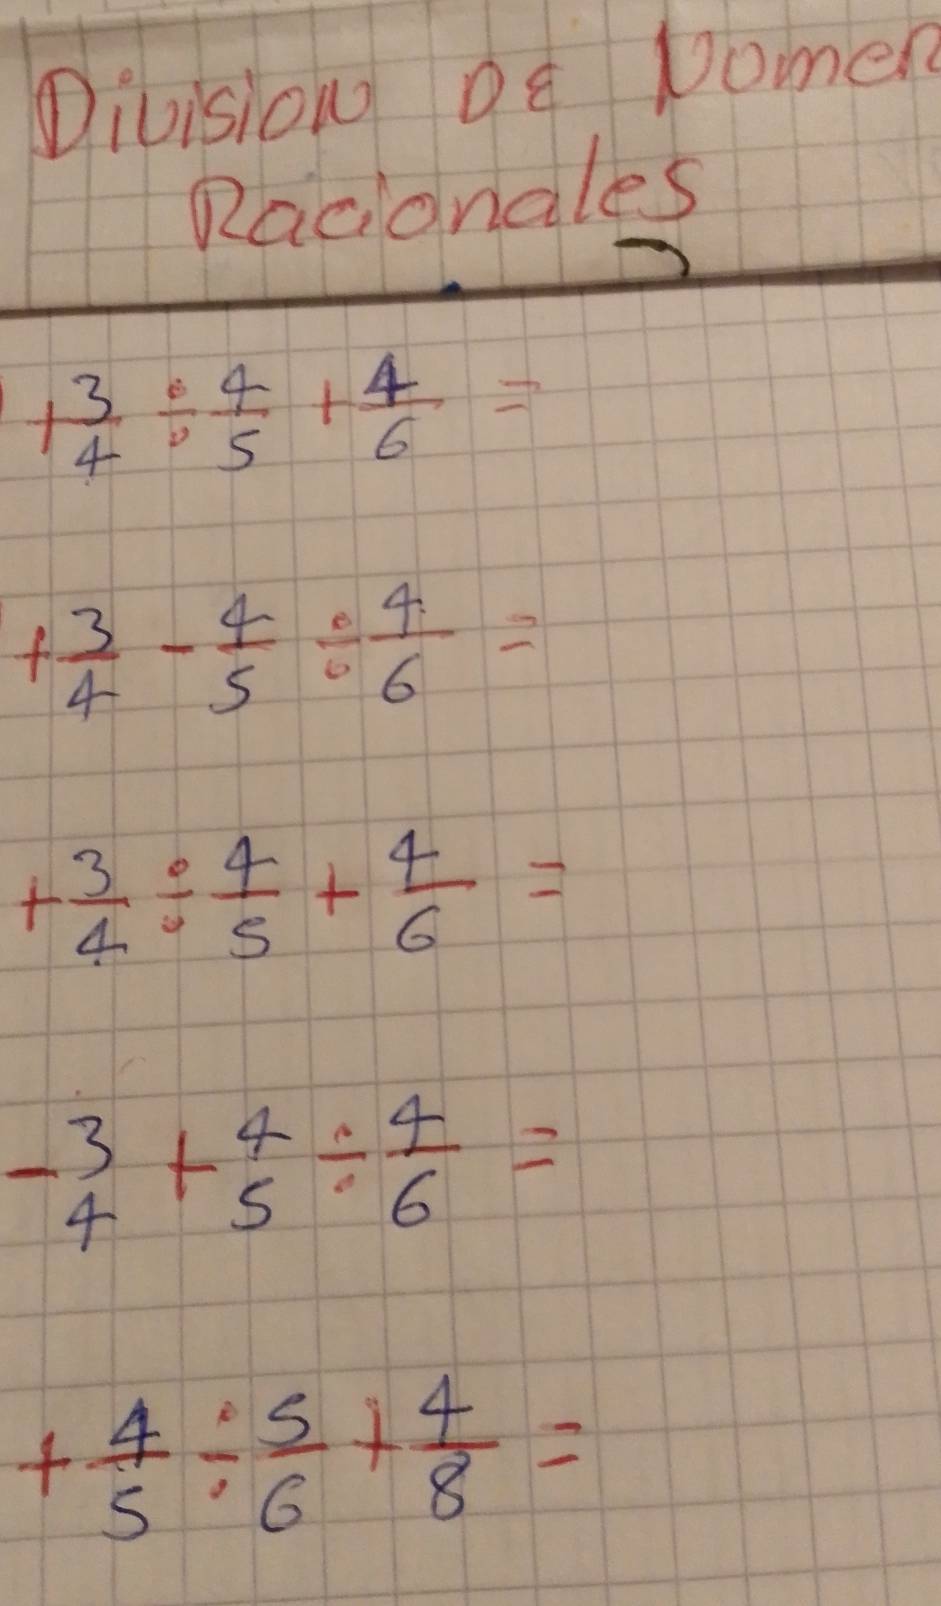 DivisioN DE Nomer
Racionales
+3/4 ÷ 4/5 + 4/6 =
+3/4 - 4/5 ÷ 4/6 =
+3/4 ÷ 4/5 + 4/6 =
-3/4 + 4/5 ÷ 4/6 =
+4/5 ÷ 5/6 + 4/8 =